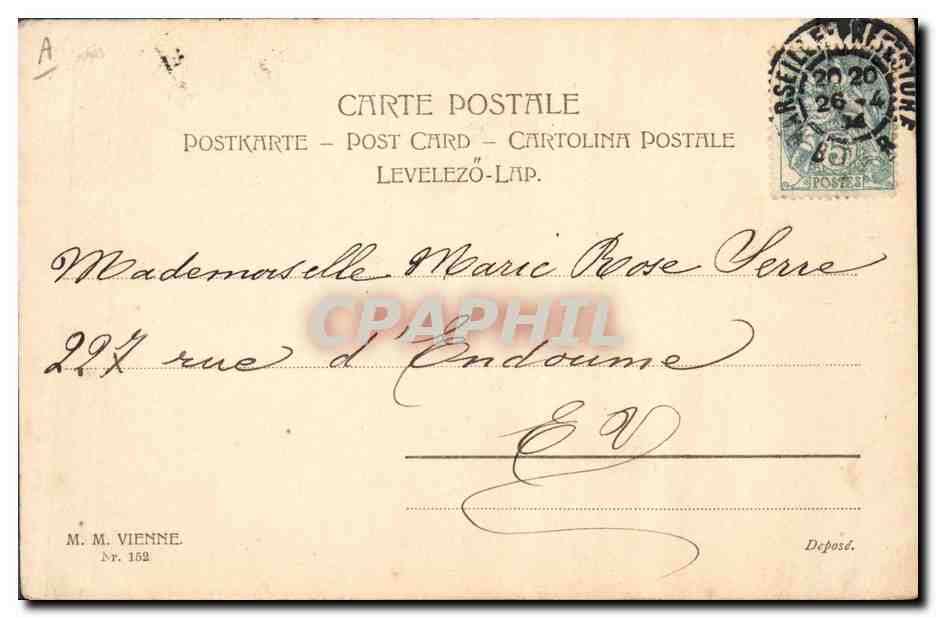 A
CARTE POSTALE
POSTKARTE – POST CARD – CARTOLINA POSTALE
LEVELEZŐ-LAP.
MARSEILLE
20 20
26 -4
5
POSTES
Mademoiselle Marie Rose Serre
CPAPHIL
227 rue d'Endoume
EV
M. M. VIENNE.
Nr. 152
Deposé.